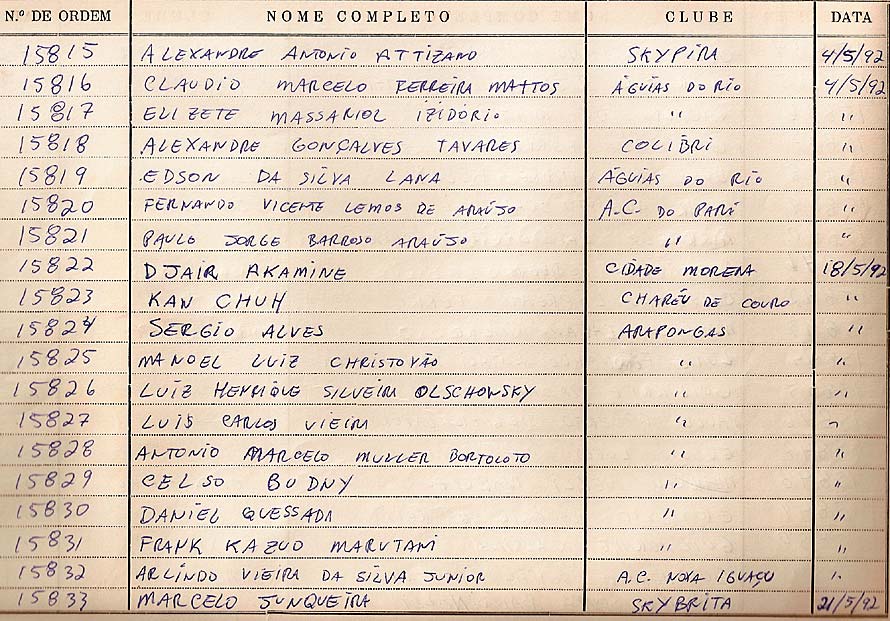 N.º DE ORDEM NOME COMPLETO CLUBE DATA
15815 ALEXANDRE ANTONIO ATTIZANO SKYPIRA 4/5/92
15816 CLAUDIO MARCELO FERREIRA MATTOS ÁGUIAS DO RIO 4/5/92
15817 ELIZETE MASSARIOL IZIDÓRIO " "
15818 ALEXANDRE GONÇALVES TAVARES COLIBRI "
15819 EDSON DA SILVA LANA ÁGUIAS DO RIO "
15820 FERNANDO VICENTE LEMOS DE ARAÚJO A.C. DO PARÁ "
15821 PAULO JORGE BARROSO ARAÚJO " "
15822 DJAIR AKAMINE CIDADE MORENA 18/5/92
15823 KAN CHUH CHAPÉU DE COURO "
15824 SERGIO ALVES ARAPONGAS "
15825 MANOEL LUIZ CHRISTOVÃO " "
15826 LUIZ HENRIQUE SILVEIRA OLSCHOWSKY " "
15827 LUIS CARLOS VIEIRA " "
15828 ANTONIO MARCELO MULLER BORTOLOTO " "
15829 CELSO BUDNY " "
15830 DANIEL QUESSADA " "
15831 FRANK KAZUO MARUTANI " "
15832 ARLINDO VIEIRA DA SILVA JUNIOR A.C. NOVA IGUAÇU "
15833 MARCELO JUNQUEIRA SKYBRITA 21/5/92